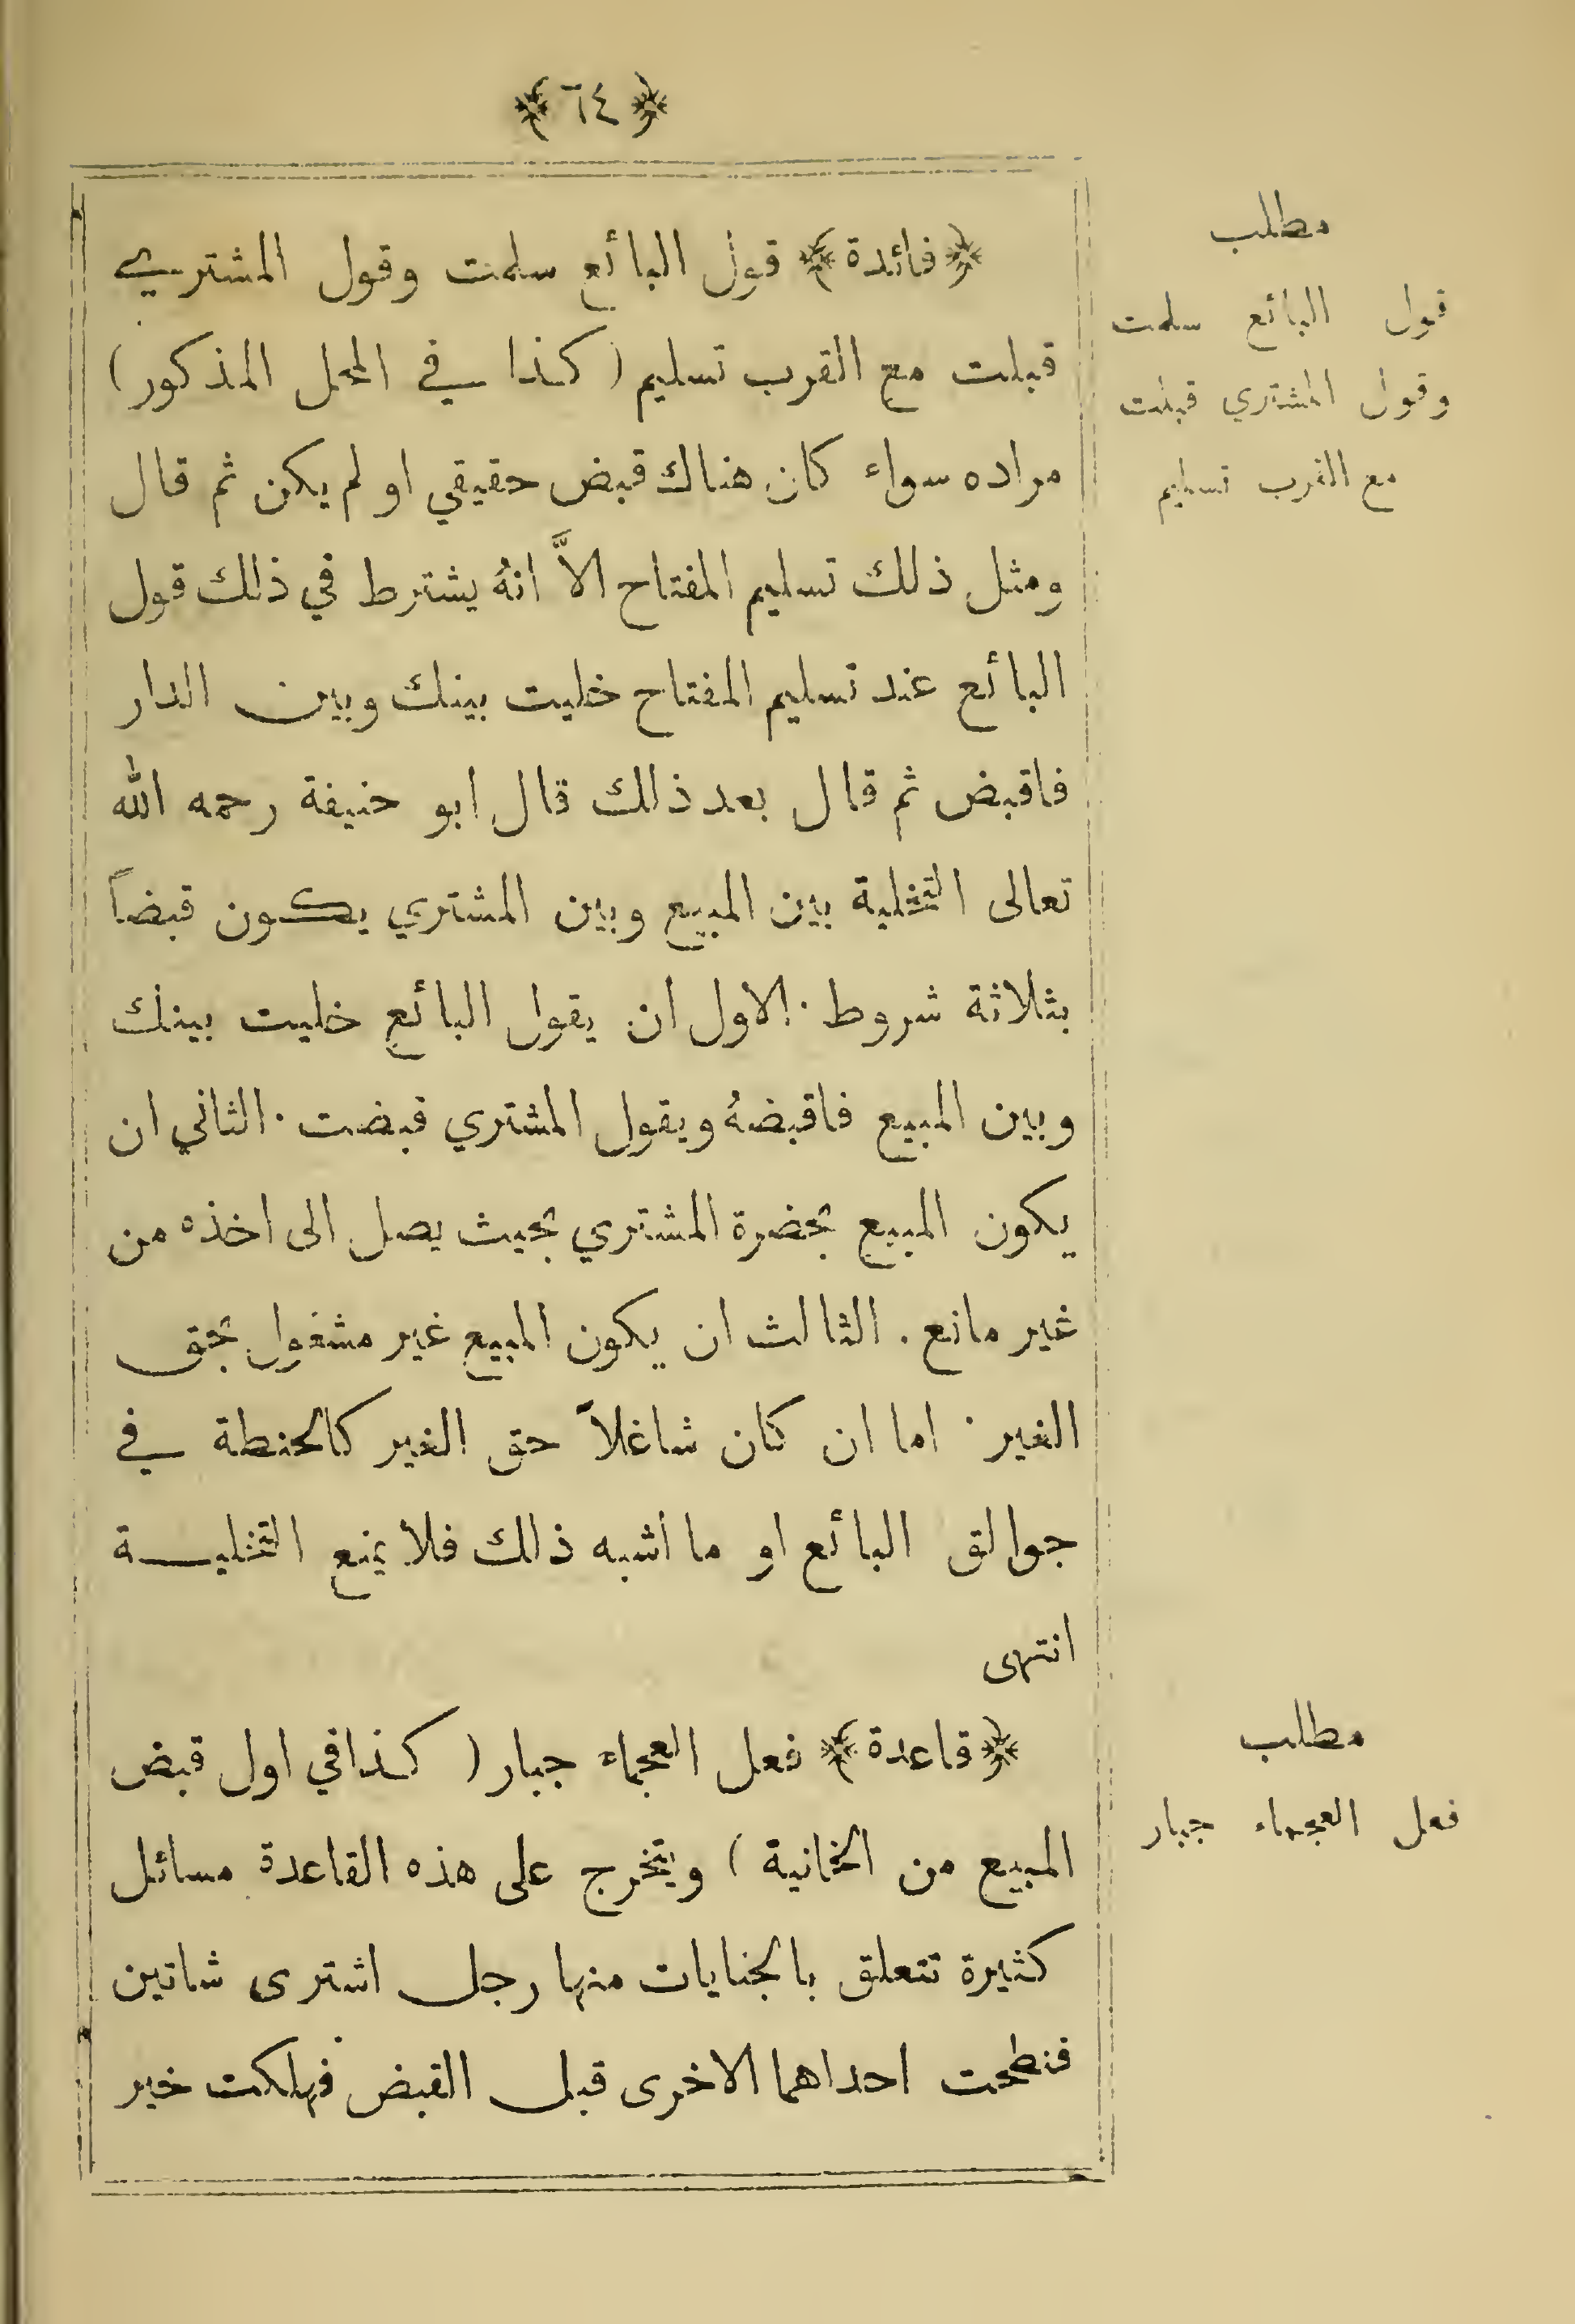 ﴿ ٦٤ ﴾
﴿ فائدة ﴾ قول البائع سلمت وقول المشتري
قبلت مع القرب تسليم ( كذا في المحل المذكور )
مراده سواء كان هناك قبض حقيقي او لم يكن ثم قال
ومثل ذلك تسليم المفتاح الاَّ انهُ يشترط في ذلك قول
البائع عند تسليم المفتاح خليت بينك وبين الدار
فاقبض ثم قال بعد ذلك قال ابو حنيفة رحمه الله
تعالى التخلية بين المبيع وبين المشتري يكون قبضاً
بثلاثة شروط · الاول ان يقول البائع خليت بينك
وبين المبيع فاقبضهُ ويقول المشتري قبضت · الثاني ان
يكون المبيع بحضرة المشتري بحيث يصل الى اخذه من
غير مانع . الثالث ان يكون المبيع غير مشغول بحق
الغير · اما ان كان شاغلاً حق الغير كالحنطة في
جوالق البائع او ما اشبه ذلك فلا يمنع التخلية
انتهى
﴿ قاعدة ﴾ فعل العجماء جبار ( كذا في اول قبض
المبيع من الخانية ) ويتخرج على هذه القاعدة مسائل
كثيرة تتعلق بالجنايات منها رجل اشترى شاتين
فنطحت احداهما الاخرى قبل القبض فهلكت خير
مطلب
قول البائع سلمت
وقول المشتري قبلت
مع القرب تسليم
مطلب
فعل العجماء جبار